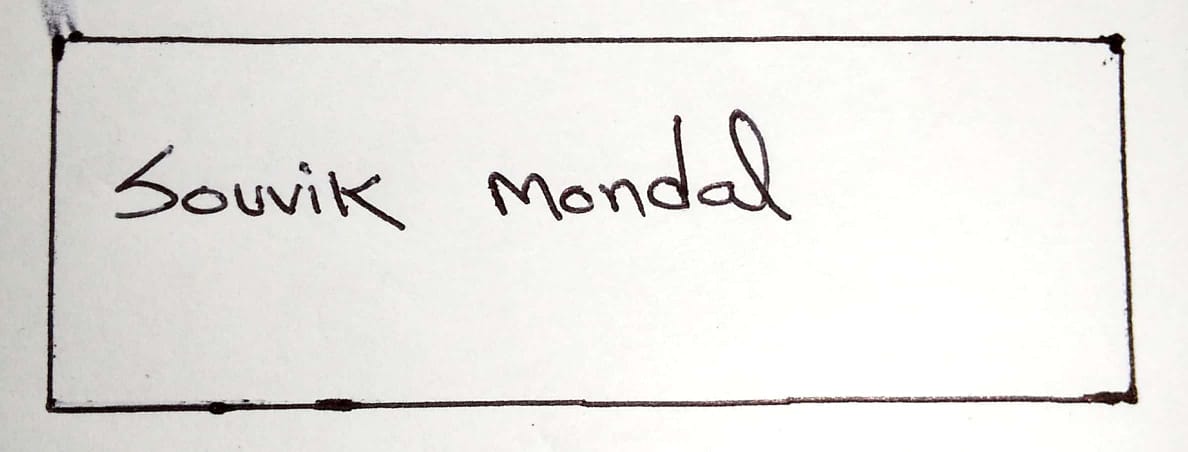 Souvik Mondal